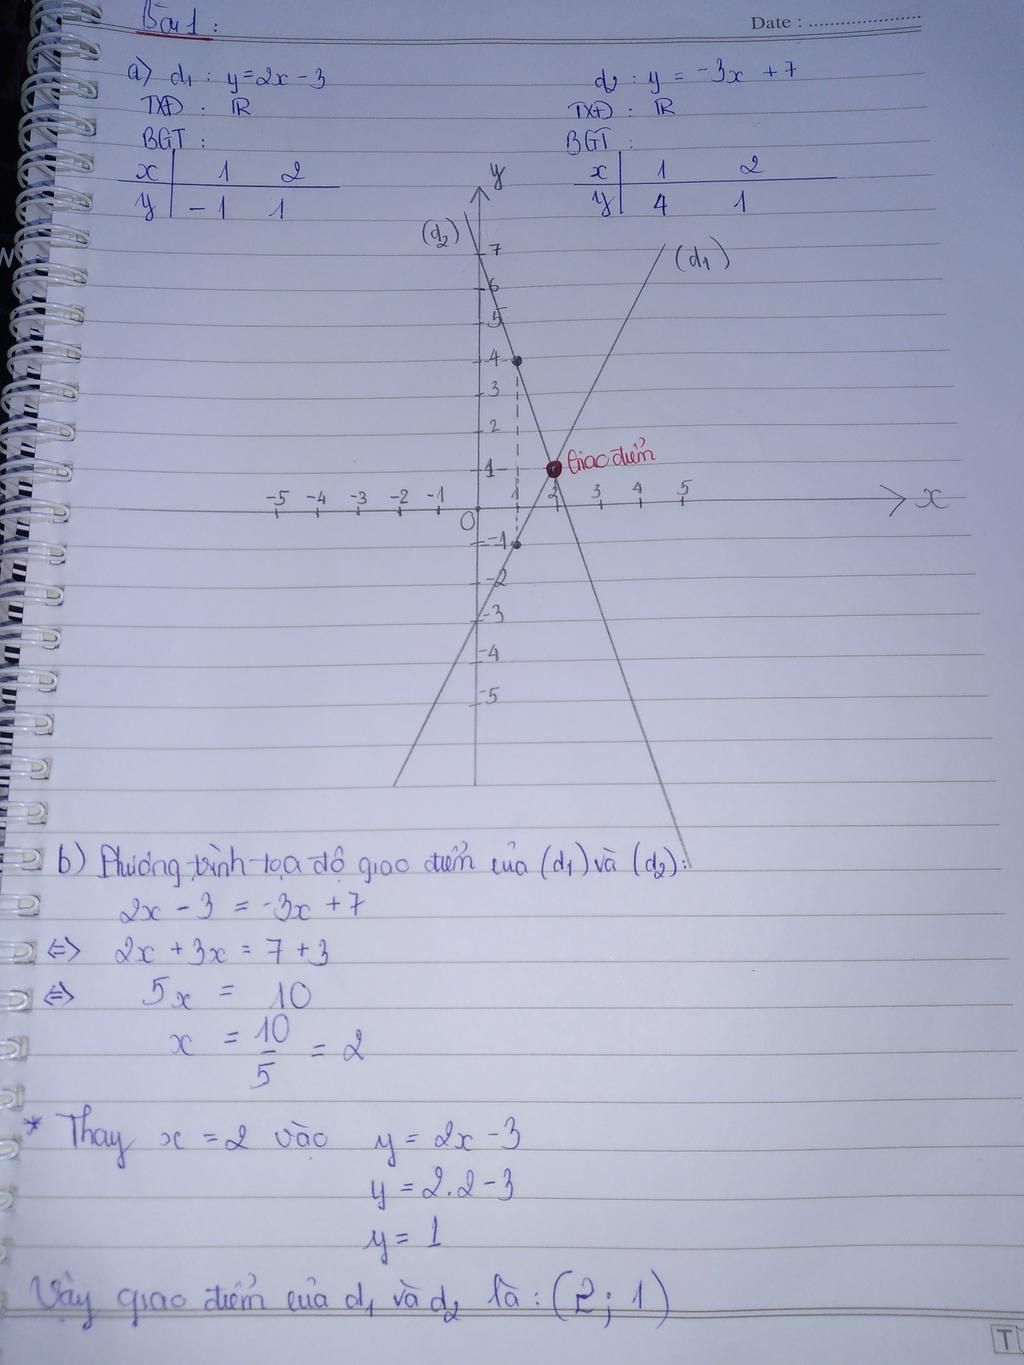 Bài 1:
Date : ........................
a) d1 : y = 2x - 3
d2 : y = -3x + 7
TXĐ : ℝ
TXĐ : ℝ
BGT :
BGT :
x 1 2
x 1 2
y -1 1
y 4 1
y
(d2)
7
(d1)
6
5
4
3
2
1
Giao điểm
-5 -4 -3 -2 -1 1 2 3 4 5
x
O
-1
-2
-3
-4
-5
b) Phương trình tọa độ giao điểm của (d1) và (d2):
2x - 3 = -3x + 7
⇔ 2x + 3x = 7 + 3
⇔ 5x = 10
x = 10/5 = 2
* Thay x = 2 vào y = 2x - 3
y = 2.2 - 3
y = 1
Vậy giao điểm của d1 và d2 là : (2; 1)
T